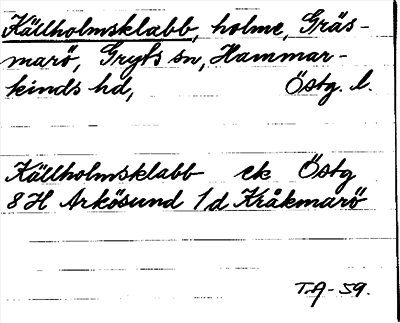 Källholmsklabb, holme, Gräs-
marö, Gryts sn, Hammar-
kinds hd, Östg. l.
Källholmsklabb ek Östg
8 H Arkösund 1 d Kråkmarö
T.A-59.